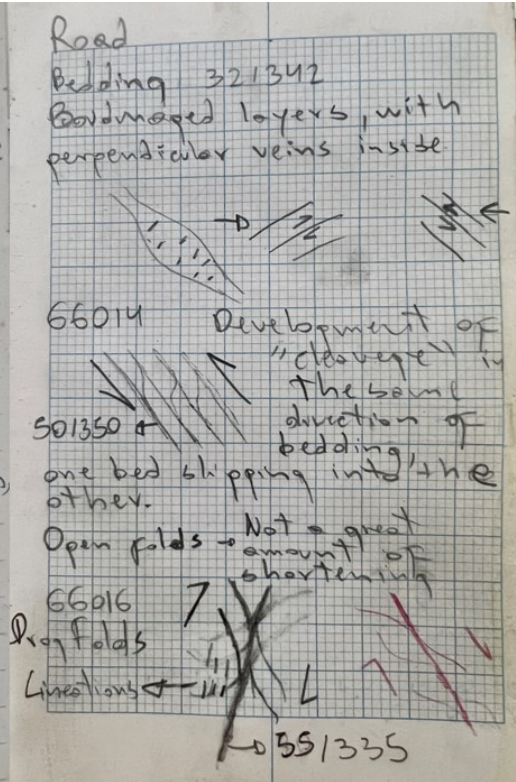 Road
Bedding 321342
Boudinaged layers, with
perpendicular veins inside.
66014
Development of
"cleavege" in
the same
direction of
bedding,
501350
one bed slipping into the
other.
Open folds → Not a great
amount of
shortening
66016
Drag folds
Lineations
351335